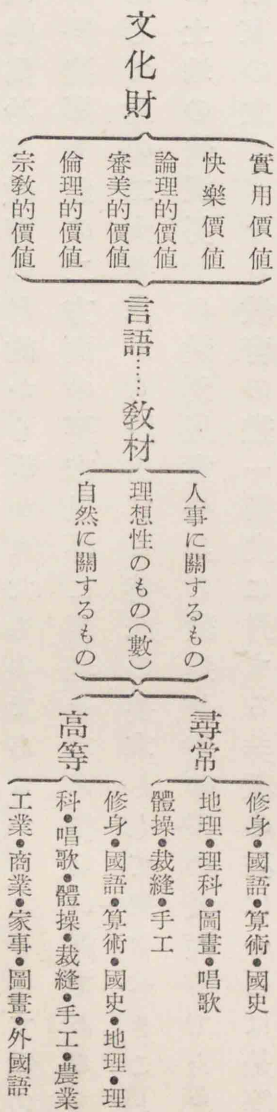 文化財
實用價値
快樂價値
論理的價値
審美的價値
倫理的價値
宗教的價値
言語……教材
人事に關するもの
理想性のもの(數)
自然に關するもの
尋常
修身・國語・算術・國史
地理・理科・圖畫・唱歌
體操・裁縫・手工
高等
修身・國語・算術・國史・地理・理
科・唱歌・體操・裁縫・手工・農業
工業・商業・家事・圖畫・外國語